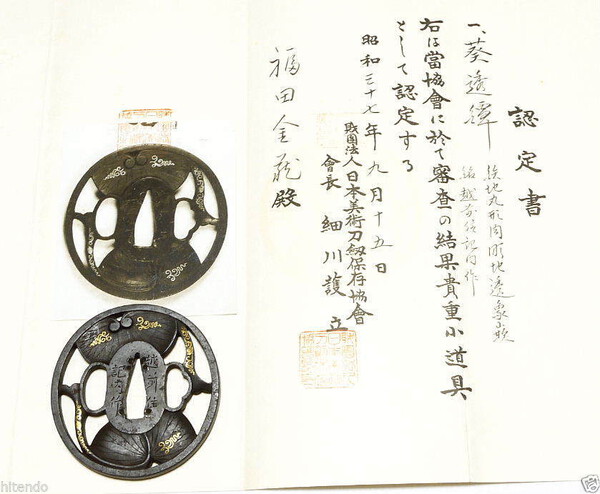 認定書
一、葵透鐔
鉄地丸形肉彫地透象嵌
銘 越前住記内作
右は當協會に於て審査の結果貴重小道具
として認定する
昭和三十七年九月十五日
財團法人日本美術刀劍保存協會
會長 細川護立
福田金蔵殿
越前住
記内作
hitendo
hitendo